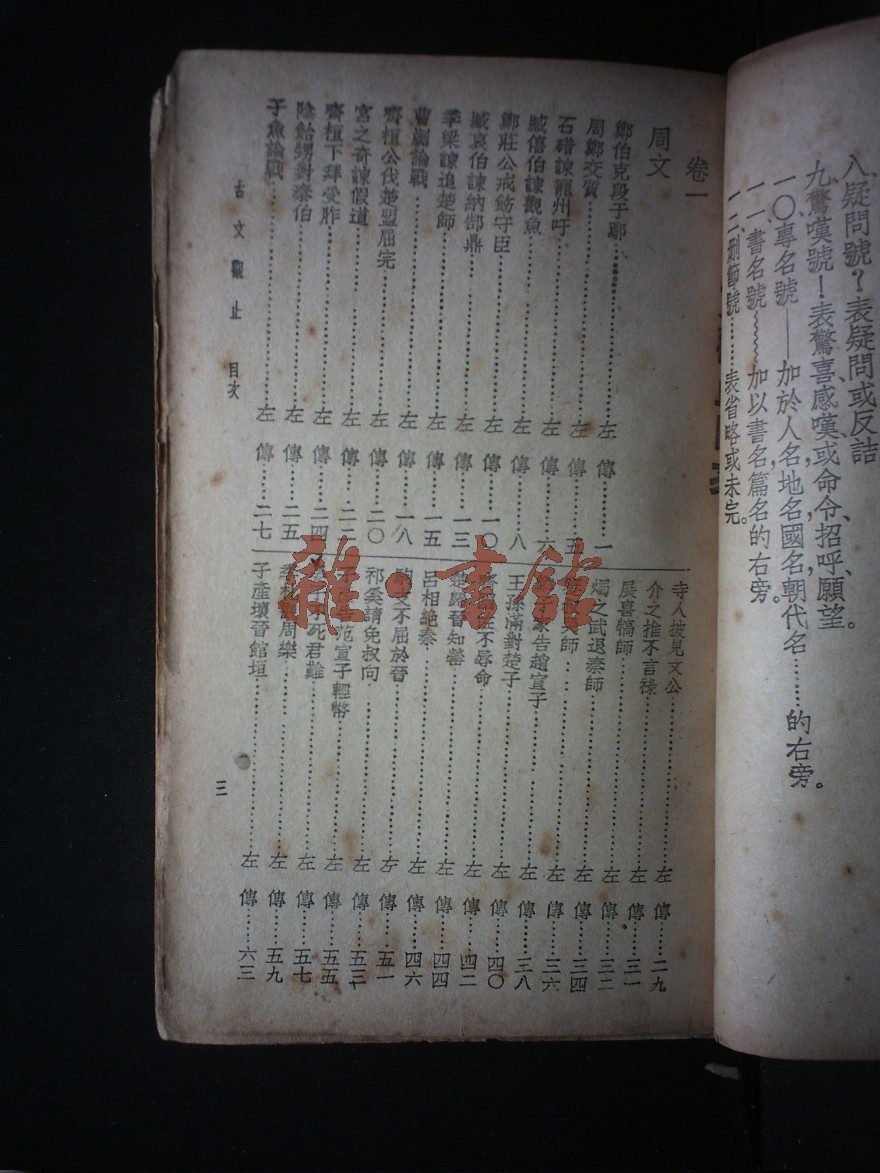 八、疑問號?表疑問或反詰
九、驚嘆號!表驚喜、感嘆或命令、招呼、願望。
一〇專名號——加於人名,地名,國名,朝代名……的右旁。
一一書名號﹏﹏加以書名篇名的右旁。
一二刪節號……表省略或未完。
卷一
周文
鄭伯克段于鄢……左傳……一
周鄭交質……左傳……五
石碏諫寵州吁……左傳……六
臧僖伯諫觀魚……左傳……八
鄭莊公戒飭守臣……左傳……一〇
臧哀伯諫納郜鼎……左傳……一三
季梁諫追楚師……左傳……一五
曹劌論戰……左傳……一八
齊桓公伐楚盟屈完……左傳……二〇
宮之奇諫假道……左傳……二二
齊桓下拜受胙……左傳……二四
陰飴甥對秦伯……左傳……二五
子魚論戰……左傳……二七
寺人披見文公……左傳……二九
介之推不言祿……左傳……三一
展喜犒師……左傳……三二
燭之武退秦師……左傳……三四
哭師……左傳……三六
子家告趙宣子……左傳……三八
王孫滿對楚子……左傳……四〇
齊國佐不辱命……左傳……四二
楚歸晉知罃……左傳……四四
呂相絕秦……左傳……四六
駒支不屈於晉……左傳……五一
祁奚請免叔向……左傳……五三
子產告范宣子輕幣……左傳……五五
子不死君難……左傳……五七
季札觀周樂……左傳……五九
子產壞晉館垣……左傳……六三
古文觀止 目次
三
雜·書館